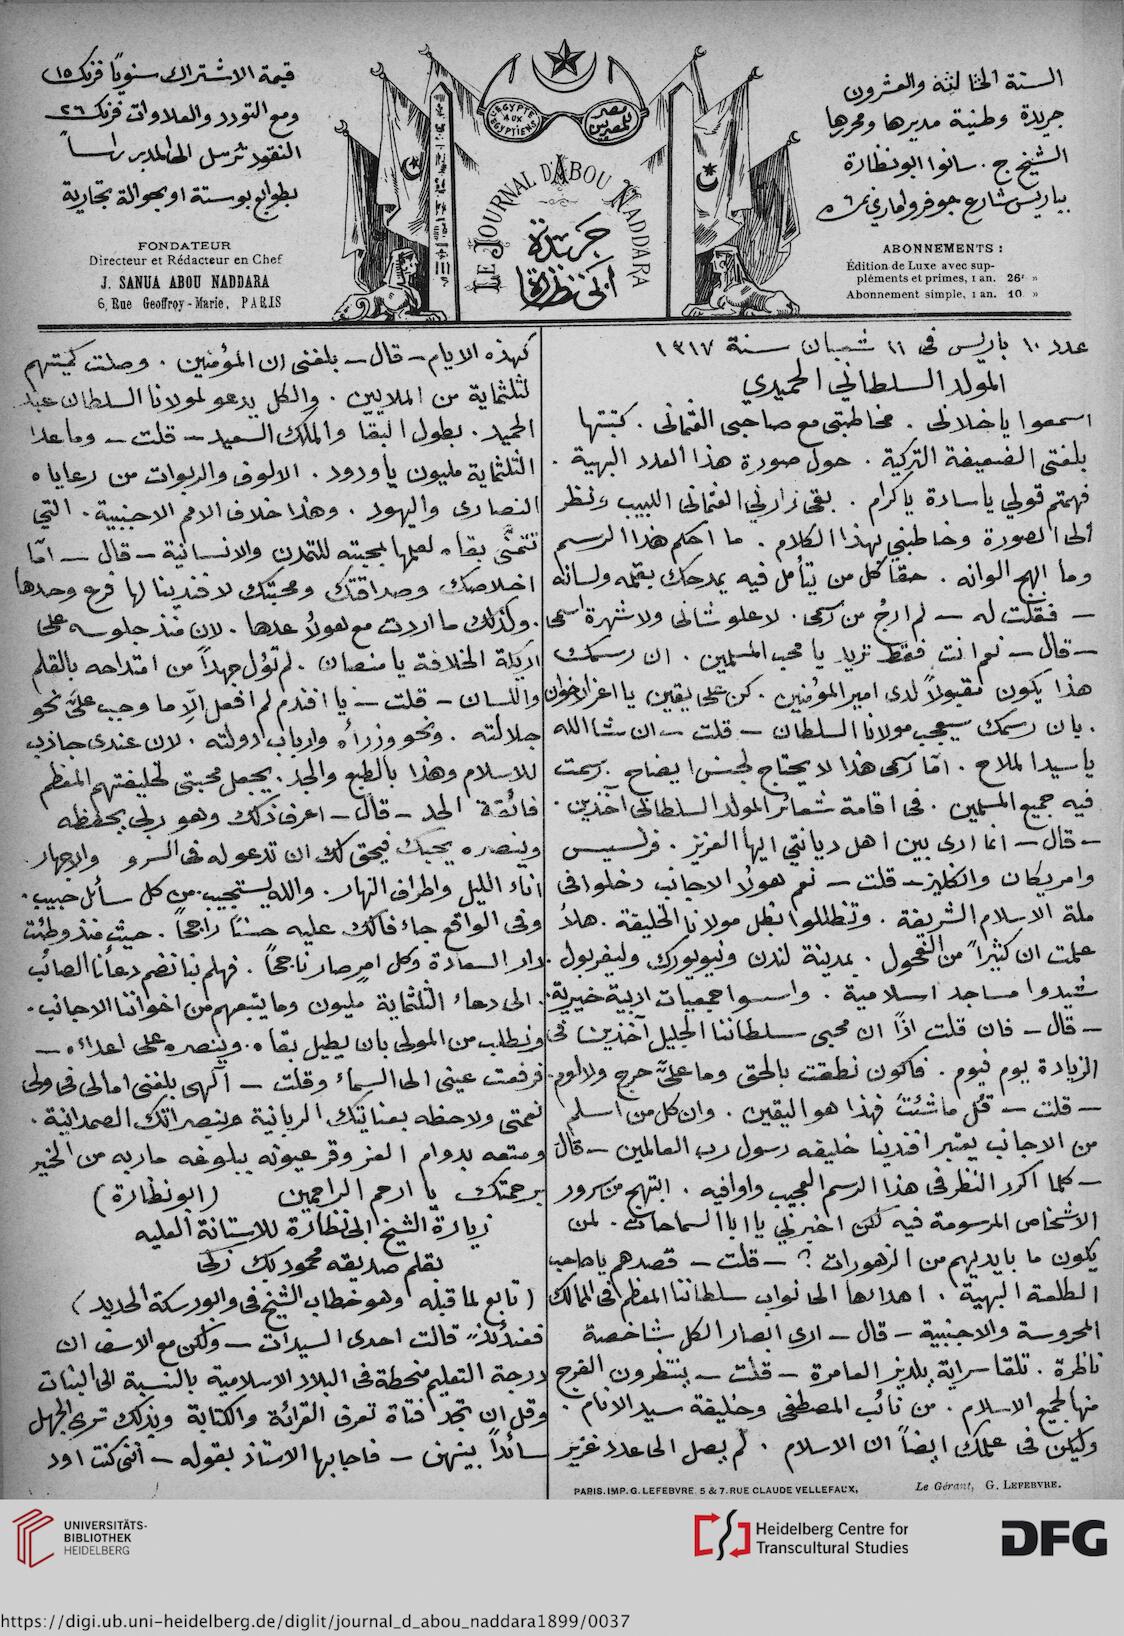 السنة الثالثة والعشرون
جريدة وطنية مديرها ومحررها
الشيخ ج. سانوا ابو نظارة
بباريس شارع جوفروا ماري نمرة ٦
ABONNEMENTS :
Édition de Luxe avec sup-
pléments et primes, 1 an. 26f »
Abonnement simple, 1 an. 10 »
L'ÉGYPTE AUX EGYPTIENS
مصر للمصريين
LE JOURNAL D'ABOU NADDARA
جريدة
ابي نظارة
قيمة الاشتراك سنويًا فرنك ١٥
ومع التودد والعلاوات فرنك ٢٦
النقود ترسل الى المدير راساً
بطوابع بوستة او بحوالة تجارية
FONDATEUR
Directeur et Rédacteur en Chef
J. SANUA ABOU NADDARA
6, Rue Geoffroy-Marie, PARIS
عدد ١٠ باريس فى ١١ شعبان سنة ١٣١٧
المولد السلطاني الحميدي
اسمعوا يا خلانى . مخاطبتى مع صاحبى العثمانى . كتبتها
بلغتى الضعيفة التركية . حول صورة هذا العدد البهية .
فهمتم قولي يا سادة يا كرام . بقى زارني العثمانى اللبيب ونظر
الى الصورة وخاطبني بهذا الكلام . ما احكم هذا الرسم
وما ابهج الوانه . حقا كل من يتأمل فيه يمدحك بقلمه ولسانه
– فقلت له – لم ارجُ من رسمى . لا علو شانى ولا شهرة اسمى
– قال – نعم انت فقط تريد يا محب المسلمين . ان رسمك
هذا يكون مقبولاً لدى امير المؤمنين . كن على يقين يا اعز الاخوان
. بان رسمك سيعجب مولانا السلطان – قلت – ان شا الله
يا سيد الملاح . امّا رسمى هذا لا يحتاج لجنس ايضاح . رسمت
فيه جميع المسلمين . فى اقامة شعائر المولد السلطانى آخذين .
– قال – انما ارى بين اهل ديانتي ايها العزيز . فرنسيس
وامريكان وانكليز – قلت – نعم هولا الاجانب دخلوا فى
ملة الاسلام الشريفة . وتظللوا بظل مولانا الخليفة . هلا
علمت ان كثيراً من الفحول . بمدينة لندن ونيويورك وليفربول
شيدوا مساجد اسلامية . واسسوا جمعيات ادبية خيرية .
– قال – فان قلت اذًا ان محبى سلطاننا الجليل آخذين فى
الزيادة يوم فيوم . فاكون نطقت بالحق وما علىّ حرج ولا لوم
– قلت – قُل ما شئت فهذا هو اليقين . وان كل من اسلم
من الاجانب يعتبر افندينا خليفه رسول رب العالمين – قال
– كلما اكرر النظر فى هذا الرسم العجيب واوافيه . ابتهج من سرور
الاشخاص المرسومة فيه لكن اخبرني يا ابا السماحات . لمن
يكون ما بايديهم من الزهورات ؟ – قلت – قصدهم يا صاحب
الطلعة البهية . اهدائها الى نواب سلطاننا المعظم فى الممالك
المحروسة والاجنبية – قال – ارى ابصار الكل شاخصة
ناظرة . تلقا سراية يلديز العامرة – قلت – ينتظرون الفرج
منها لجميع الاسلام . من نائب المصطفى وخليفة سيد الانام .
وليكن فى علمك ايضاً ان الاسلام . لم يصل الى عدد غزير
كهذه الايام – قال – بلغنى ان المؤمنين . وصلت كميتهم
لثلثماية من الملايين . والكل يدعو لمولانا السلطان عبد
الحميد . بطول البقا والملك السعيد – قلت – وما عدا
الثلثماية مليون يا ودود . الالوف والربوات من رعاياه
النصارى واليهود . وهذا خلاف الامم الاجنبية . التي
تتمنّى بقاه لعلمها بمحبته للتمدن والانسانية – قال – امّا
اخلاصك وصداقتك ومحبتك لافندينا لها فرع وحدها
. وكذلك ما اردت مع هولا عدها . لان منذ جلوسه على
اريكة الخلافة يا منصان . لم تؤل جهداً من امتداحه بالقلم
واللسان – قلت – يا افندم لم افعل الا ما وجب علىّ نحو
جلالته . ونحو وزرأه وارباب دولته . لان عندى جاذب
للاسلام وهذا بالطبع والجد . يجعل محبتى لخليفتهم المعظم
فائقة الحد – قال – اعرف ذلك وهو ربى يحفظه
وينصره يحبك فيحق لك ان تدعو له فى السر و والاجهار
اناء الليل واطراف النهار . والله يستجيب من كل سائل حبيب .
وفى الواقع جاء فالك عليه حسنًا راجحاً . حيث منذ وطئت
دار السعادة وكل امرٍ صار ناجحاً . فهلم بنا نضم دعأنا الصائب
الى دعاء الثلثماية مليون وما يتبعهم من اخواننا الاجانب .
ونطلب من المولى بان يطيل بقاه . وينصره على اعدائه –
فرفعت عينى الى السماء وقلت – آلهى بلغنى امالى فى ولى
نعمتى ولاحظه بعنايتك الربانية وبنصراتك الصمدانية .
ومتعه بدوام العز وقر عيونه ببلوغه ماربه من الخير
برحمتك يا ارحم الراحمين (ابو نظارة)
زيارة الشيخ ابى نظارة للاستانة العليه
بقلم صديقه محمود بك زكى
(تابع لما قبله وهو خطاب الشيخ فى وابور سكة الحديد)
فعندئذٍ قالت احدى السيدات – ولكن مع الاسف ان
درجة التعليم منحطة فى البلاد الاسلامية بالنسبة الى البنات
وقل ان تجد فتاة تعرف القرائة والكتابة وبذلك ترى الجهل
سائداً بينهن – فاجابها الاستاذ بقوله – اننى كنت اود
PARIS. IMP. G. LEFEBVRE. 5 & 7. RUE CLAUDE VELLEFAUX,
Le Gérant, G. LEFEBVRE.
UNIVERSITÄTS-
BIBLIOTHEK
HEIDELBERG
Heidelberg Centre for
Transcultural Studies
DFG
https://digi.ub.uni-heidelberg.de/diglit/journal_d_abou_naddara1899/0037